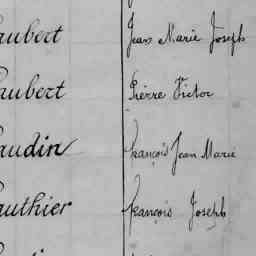 aubert Jean Marie Joseph
aubert Pierre Victor
audin François Jean Marie
authier François Joseph